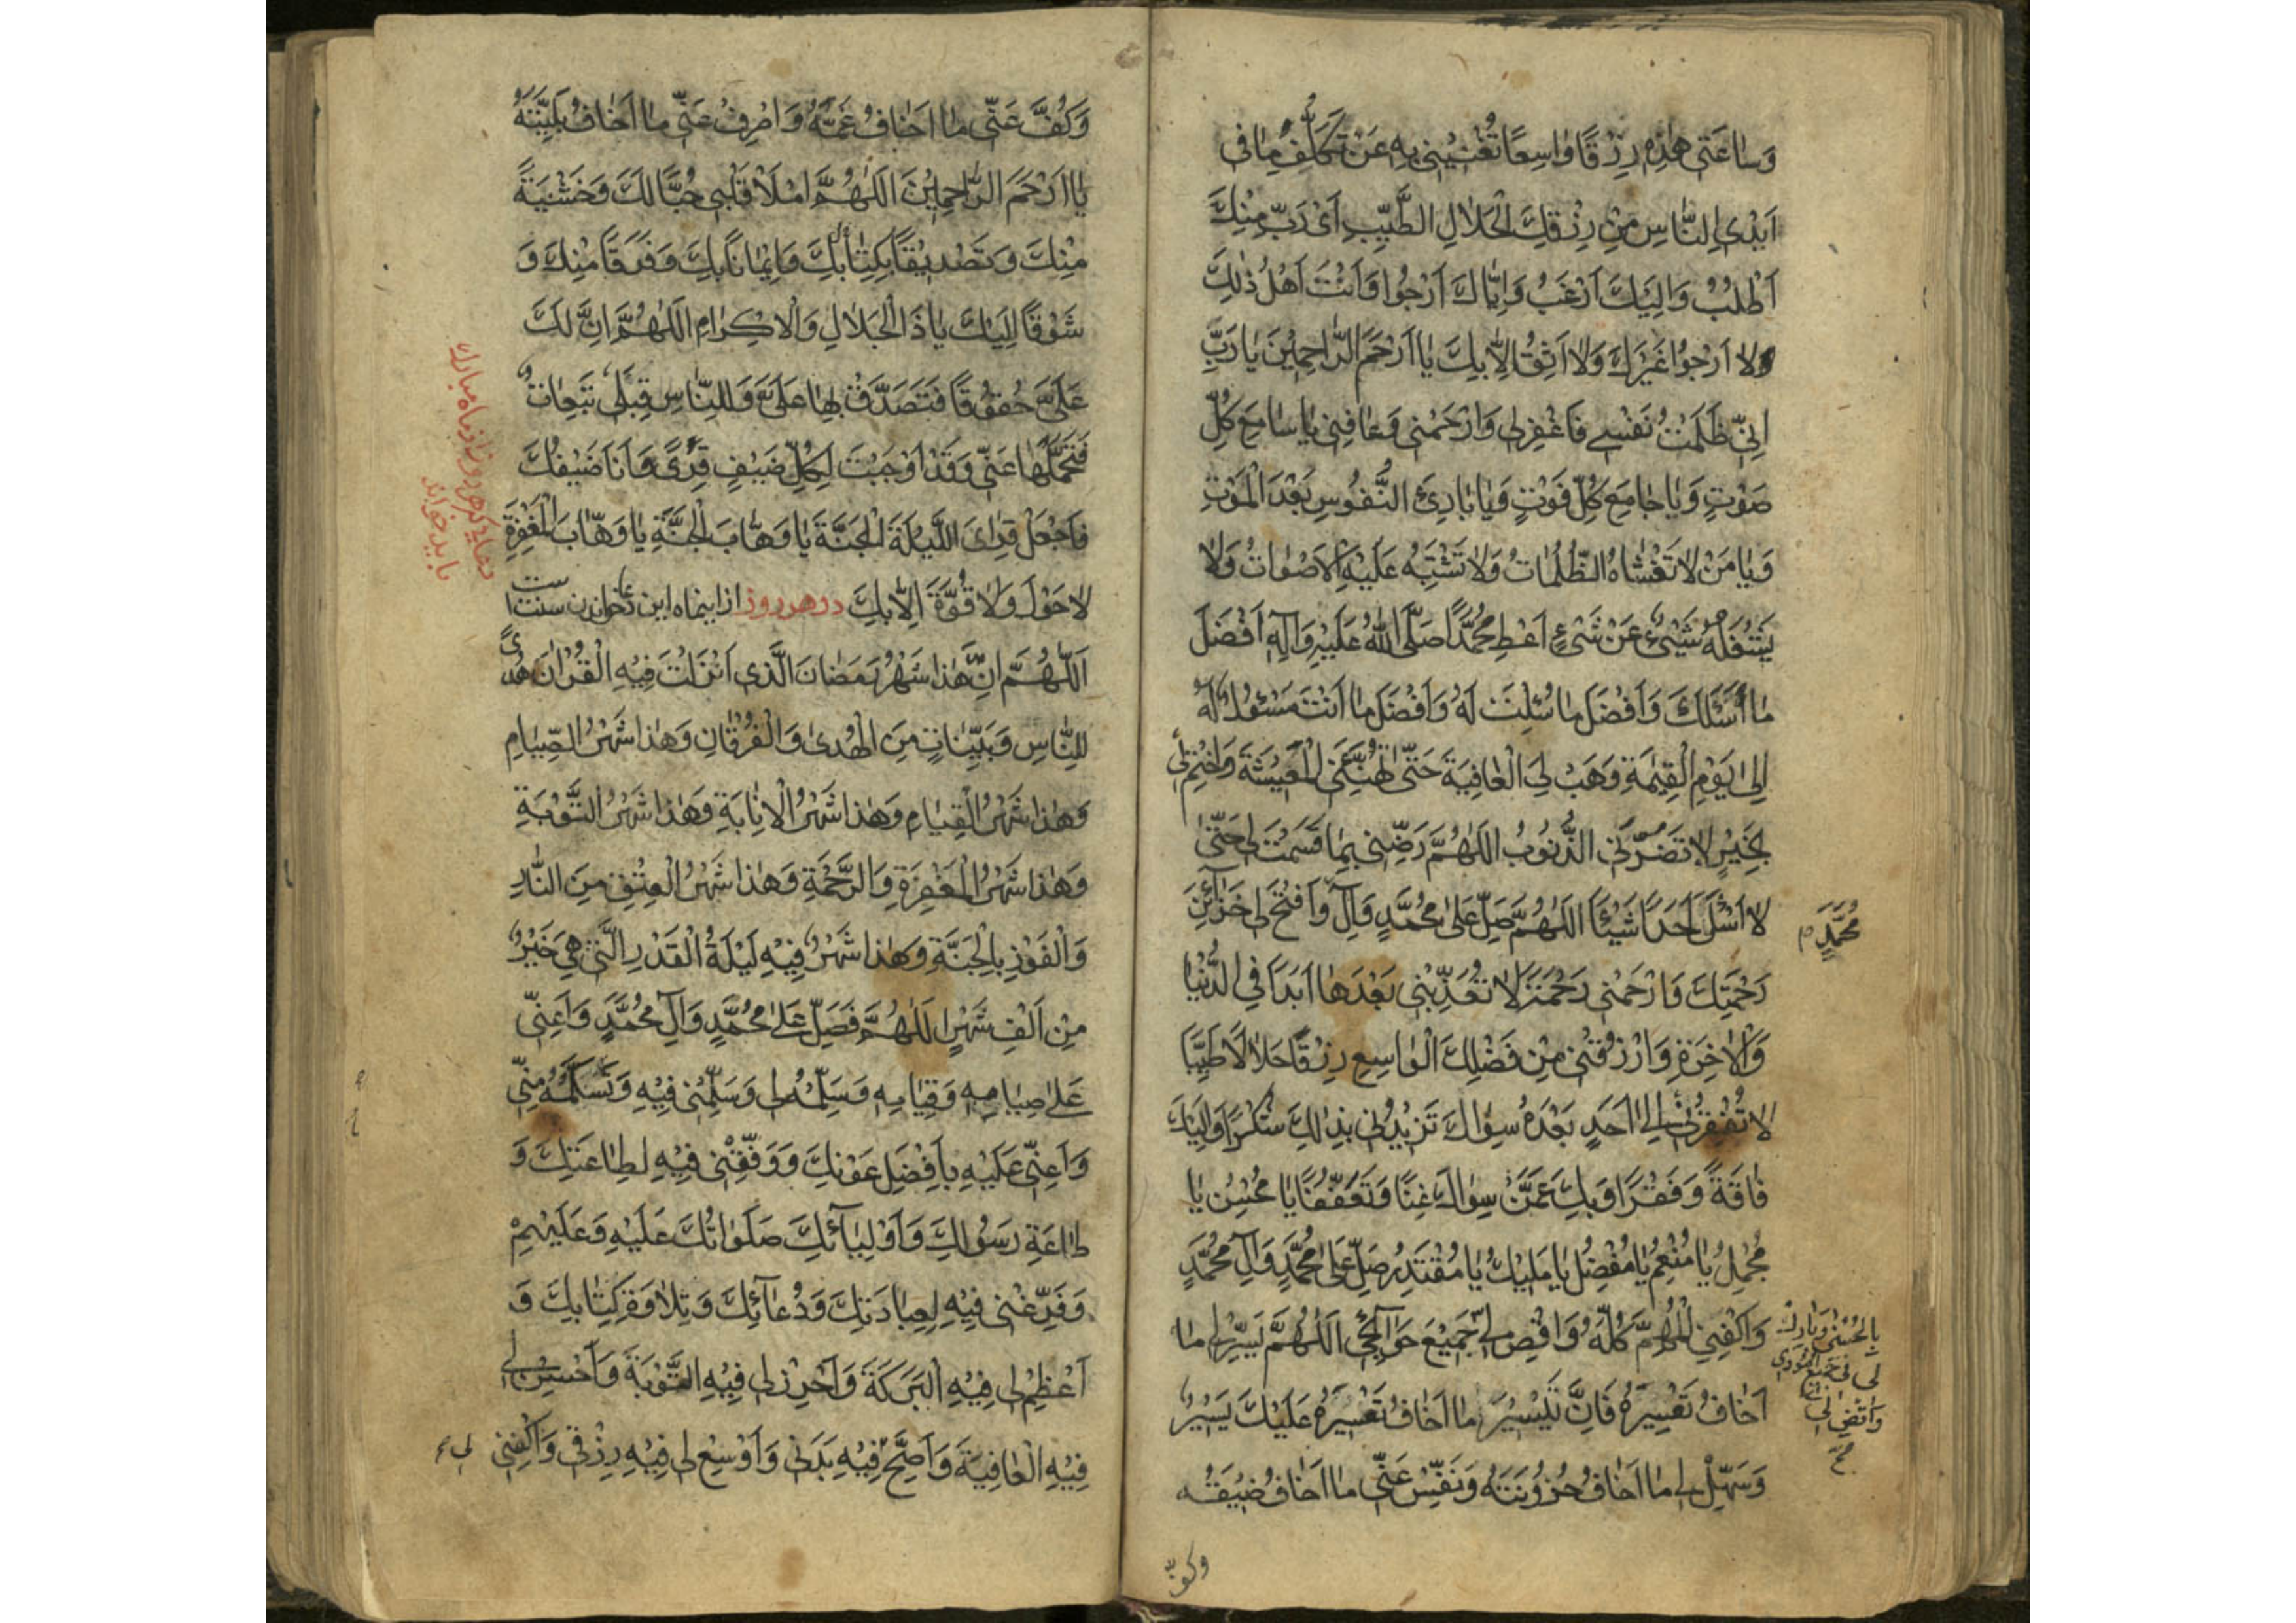 وَسٰاعَتى هٰذِهِ رِزْقًا وٰاسِعًا تُغْنيْنى بِهِ عَنْ تَكَلُّفِ مٰا فى
اَيْدِى النّٰاسِ مِنْ رِزْقِكَ الْحَلٰالِ الطَّيِّبِ اَىْ رَبِّ مِنْكَ
اَطْلُبُ وَاِلَيْكَ اَرْغَبُ وَاِيّٰاكَ اَرْجُوا وَاَنْتَ اَهْلُ ذٰلِكَ
وَلٰا اَرْجُوا غَيْرَكَ وَلٰا اَثِقُ اِلّٰا بِكَ يٰا اَرْحَمَ الرّٰاحِمِيْنَ يٰا رَبِّ
اِنّى ظَلَمْتُ نَفْسى فَاغْفِرلى وَارْحَمْنى وَعٰافِنى يٰا سٰامِعَ كُلِّ
صَوْتٍ وَيٰا جٰامِعَ كُلِّ فَوْتٍ وَيٰا بٰارِئَ النُّفُوسِ بَعْدَ الْمَوْتِ
وَيٰا مَنْ لٰا تَغْشٰاهُ الظُّلُمٰاتُ وَلٰا تَشْتَبِهُ عَلَيْهِ الْاَصْوٰاتُ وَلٰا
يَشْغَلُهُ شَىْءٌ عَنْ شَىْءٍ اَعْطِ مُحَمَّدًا صَلَّى اللّٰهُ عَلَيْهِ وَاٰلِهِ اَفْضَلَ
مٰا اَسْئَلُكَ وَاَفْضَلَ مٰا سُئِلْتَ لَهُ وَاَفْضَلَ مٰا اَنْتَ مَسْئُولٌ لَهُ
اِلٰى يَوْمِ الْقِيٰمَةِ وَهَبْ لِىَ الْعٰافِيَةَ حَتّٰى تُهَنِّئَنِى الْمَعيْشَةَ وَاخْتِمْ لى
بِخَيْرٍ لٰا تَضُرَّنى الذُّنُوبُ اَللّٰهُمَّ رَضِّنى بِمٰا قَسَمْتَ لى حَتّٰى
لٰا اَسْئَلَ اَحَدًا شَيْئًا اَللّٰهُمَّ صَلِّ عَلٰى مُحَمَّدٍ وَاٰلِ وَافْتَحْ لى خَزٰآئِنَ
مُحَمَّدٍ
رَحْمَتِكَ وَارْحَمْنى رَحْمَةً لٰا تُعَذِّبْنى بَعْدَهٰا اَبَدًا فِى الدُّنْيٰا
وَالْاٰخِرَةِ وَارْزُقْنى مِنْ فَضْلِكَ الْوٰاسِعِ رِزْقًا حَلٰالًا طَيِّبًا
لٰا تُفْقِرُنى اِلٰى اَحَدٍ بَعْدَهُ سِوٰاكَ تَزيْدُنى بِذٰلِكَ شُكْرًا وَاِلَيْكَ
فٰاقَةً وَفَقْرًا وَبِكَ عَمَّنْ سِوٰاكَ غِنًا وَتَعَفُّفًا يٰا مُحْسِنُ يٰا
مُجْمِلُ يٰا مُنْعِمُ يٰا مُفْضِلُ يٰا مَليْكُ يٰا مُقْتَدِرُ صَلِّ عَلٰى مُحَمَّدٍ وَاٰلِ مُحَمَّدٍ
وَاكْفِنِى الْمُهِمَّ كُلَّهُ وَاقْضِ لى جَميْعَ حَوٰآئِجى اَللّٰهُمَّ يَسِّرْ لى مٰا
بِالْحُسْنٰى وَبٰارِكْ
لى فى جَميْعِ اُمُورى
وَاقْضِ لى
صح
اَخٰافُ تَعْسيْرَهُ فَاِنَّ تَيْسيْرَ مٰا اَخٰافُ تَعْسيْرَهُ عَلَيْكَ يَسيْرٌ
وَسَهِّلْ لى مٰا اَخٰافُ حُزُوْنَتَهُ وَنَفِّسْ عَنّى مٰا اَخٰافُ ضيْقَهُ
وكفّ
وَكُفَّ عَنّى مٰا اَخٰافُ غَمَّهُ وَاصْرِفْ عَنّى مٰا اَخٰافُ بَلِيَّتَهُ
يٰا اَرْحَمَ الرّٰاحِميْنَ اَللّٰهُمَّ امْلَاْ قَلْبى حُبًّا لَكَ وَخَشْيَةً
مِنْكَ وَتَصْديْقًا بِكِتٰابِكَ وَايْمٰانًا بِكَ وَفَرَقًا مِنْكَ وَ
شَوْقًا اِلَيْكَ يٰا ذَا الْجَلٰالِ وَالْاِكْرٰامِ اَللّٰهُمَّ اِنَّ لَكَ
عَلَىَّ حُقُوْقًا فَتَصَدَّقْ بِهٰا عَلَىَّ وَلِلنّٰاسِ قِبَلى تَبِعٰاتٌ
فَتَحَمَّلْهٰا عَنّى وَقَدْ اَوْجَبْتَ لِكُلِّ ضَيْفٍ قِرًى وَاَنَا ضَيْفُكَ
فَاجْعَلْ قِرٰاىَ اللَّيْلَةَ الْجَنَّةَ يٰا وَهّٰابَ الْجَنَّةِ يٰا وَهّٰابَ الْمَغْفِرَةِ
دعايى كه هر روز از ماه مبارك
بايد خواند
لٰا حَوْلَ وَلٰا قُوَّةَ اِلّٰا بِكَ در هر روز از اينماه اين دعا خواندن سنت است
اَللّٰهُمَّ اِنَّ هٰذا شَهْرُ رَمَضٰانَ الَّذى اَنْزَلْتَ فيْهِ الْقُرْاٰنَ هُدًى
لِلنّٰاسِ وَبَيِّنٰاتٍ مِنَ الْهُدىٰ وَالْفُرْقٰانِ وَهٰذا شَهْرُ الصِّيٰامِ
وَهٰذا شَهْرُ الْقِيٰامِ وَهٰذا شَهْرُ الْاِنٰابَةِ وَهٰذا شَهْرُ التَّوْبَةِ
وَهٰذا شَهْرُ الْمَغْفِرَةِ وَالرَّحْمَةِ وَهٰذا شَهْرُ الْعِتْقِ مِنَ النّٰارِ
وَالْفَوْزِ بِالْجَنَّةِ وَهٰذا شَهْرٌ فيْهِ لَيْلَةُ الْقَدْرِ الَّتى هِىَ خَيْرٌ
مِنْ اَلْفِ شَهْرٍ اَللّٰهُمَّ فَصَلِّ عَلٰى مُحَمَّدٍ وَاٰلِ مُحَمَّدٍ وَاَعِنّى
عَلٰى صِيٰامِهِ وَقِيٰامِهِ وَسَلِّمْهُ لى وَسَلِّمْنى فيْهِ وَتَسَلَّمْهُ مِنّى
وَاَعِنّى عَلَيْهِ بِاَفْضَلِ عَوْنِكَ وَوَفِّقْنى فيْهِ لِطٰاعَتِكَ وَ
طٰاعَةِ رَسُوْلِكَ وَاَوْلِيٰآئِكَ صَلَوٰاتُكَ عَلَيْهِ وَعَلَيْهِمْ
وَفَرِّغْنى فيْهِ لِعِبٰادَتِكَ وَدُعٰآئِكَ وَتِلٰاوَةِ كِتٰابِكَ وَ
اَعْظِمْ لى فيْهِ الْبَرَكَةَ وَاَحْرِزْ لى فيْهِ التَّوْبَةَ وَاَحْسِنْ لى
فيْهِ الْعٰافِيَةَ وَاَصِحَّ فيْهِ بَدَنى وَاَوْسِعْ لى فيْهِ رِزْقى وَاكْفِنى